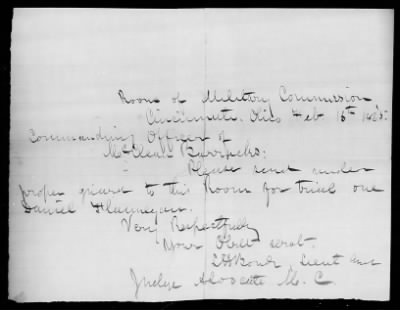 Room of Military Commission
Cincinnati, Ohio Feb 16th 1865.
Commanding Officer of
McLean Barracks:
Please send under
proper guard to this Room for trial one
Daniel Flannegan.
Very Respectfully
Your Obdt servt.
Lieut
Judge Advocate M. C.